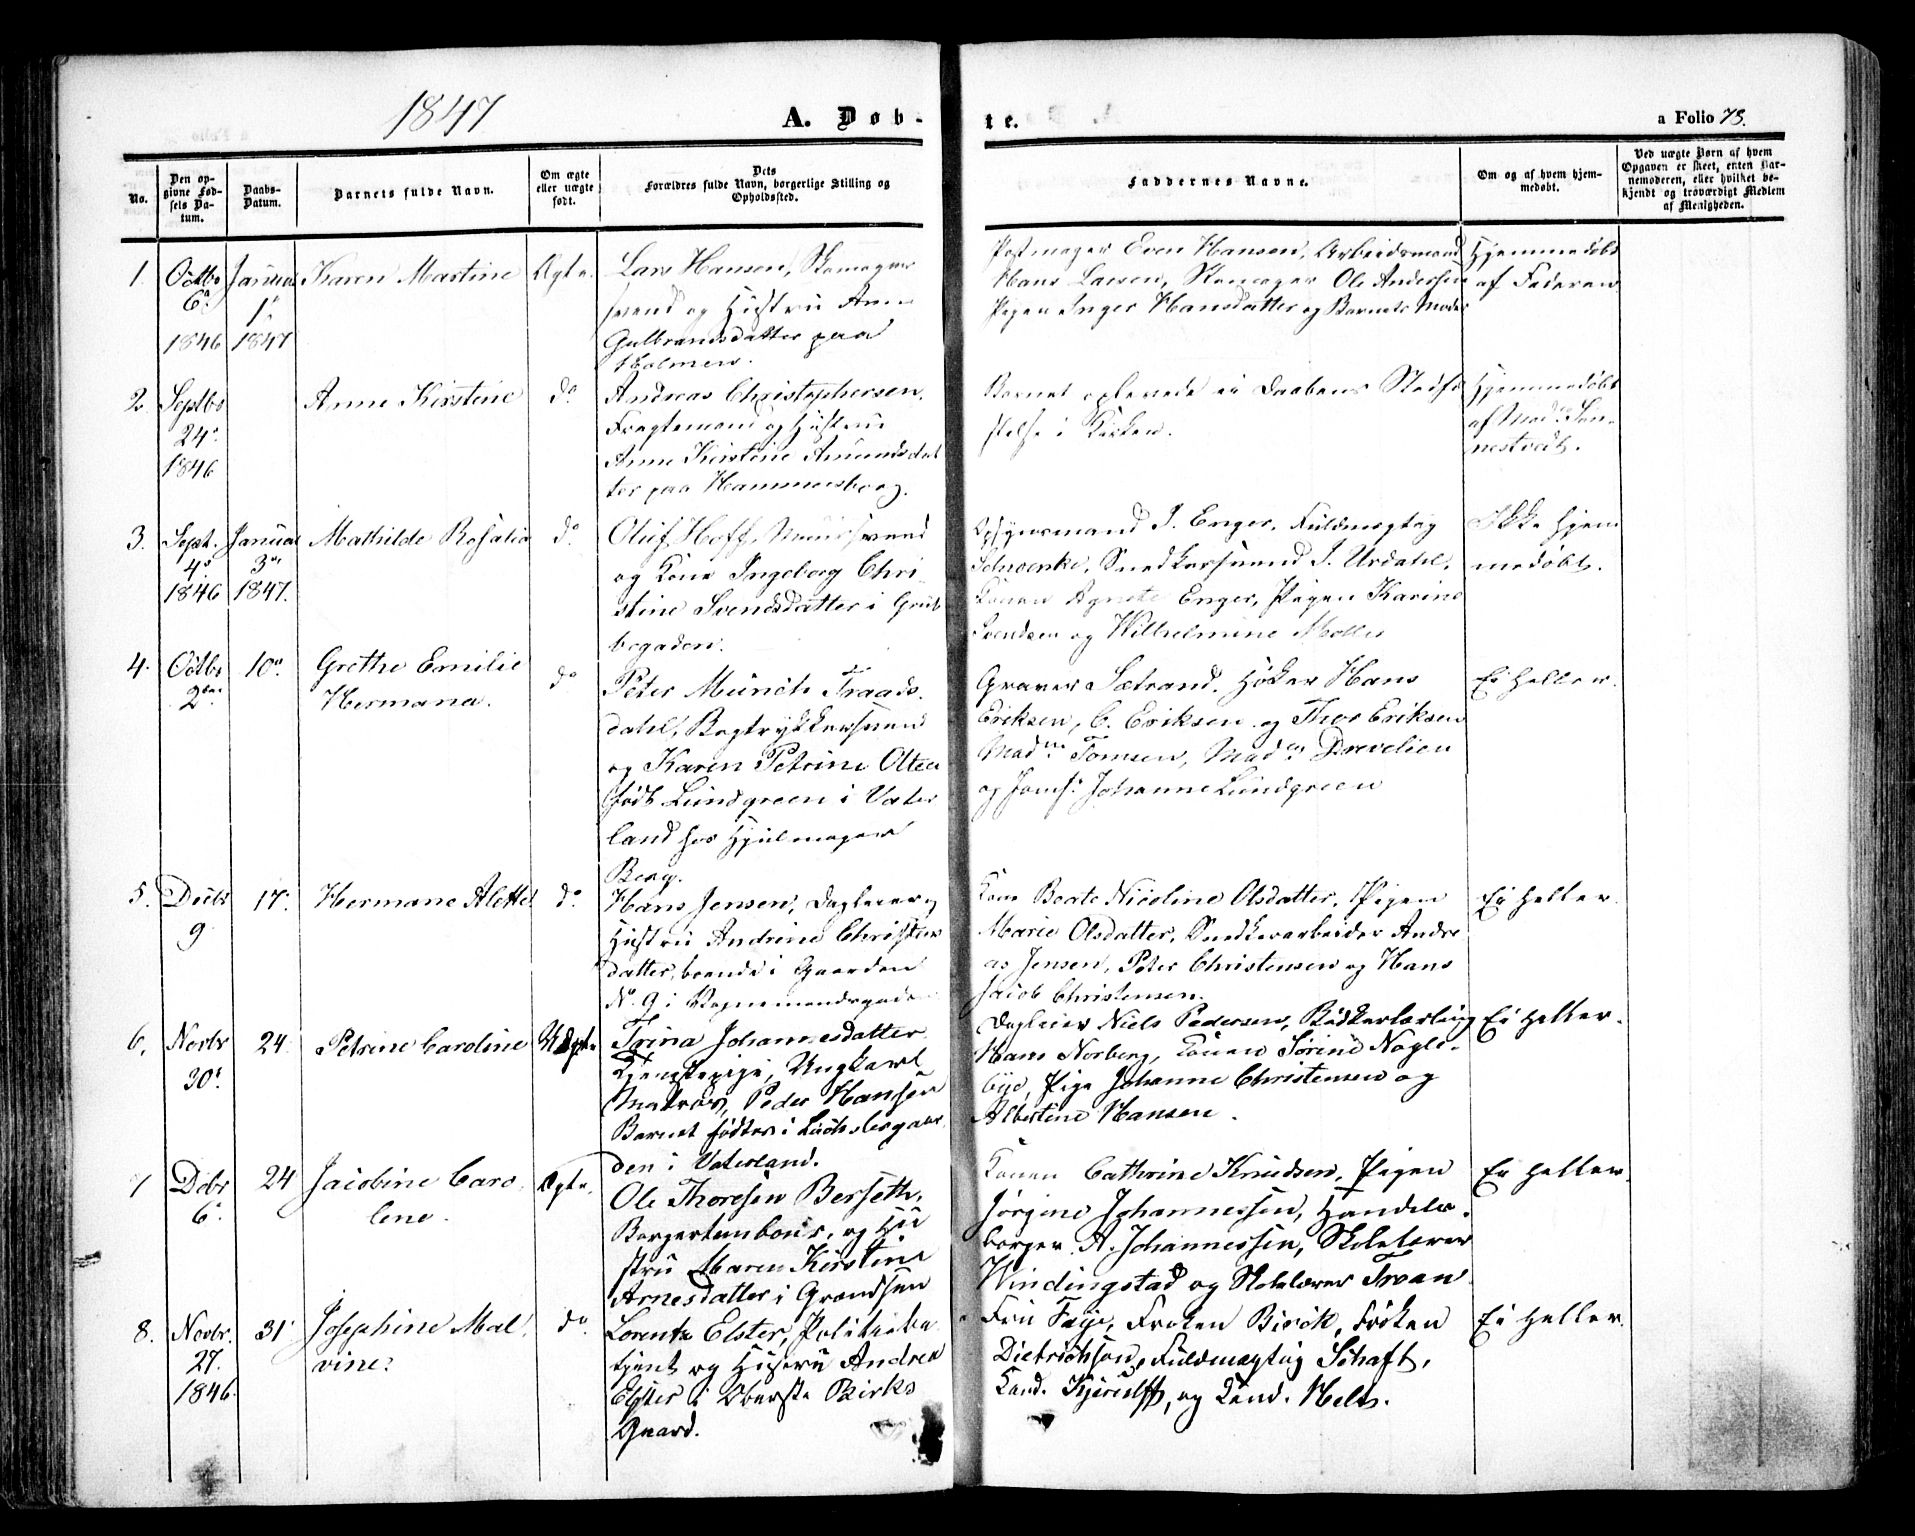 1847
A. Døb-
te.
a Folio 75.
No.
Den op-
givne Fød-
sels Da-
tum.
Daabs-
Datum.
Barnets fulde Navn.
Om ægte
eller uægte
født.
Dets
Forældres fulde Navn, borgerlige Stilling og
Opholdssted.
Faddernes Navne.
Om og af hvem hjem-
medøbt.
Ved uægte Børn af hvem
Opgaven er skeet, enten Bar-
nemoderen, eller hvilket be-
kjendt og troværdigt Medlem
af Menigheden.
1.
Octbr
6te
1846
Januar
1.
1847
Karen Martine
Ægte.
Lars Hansen, Skomager
svend og Hustru Anne
Gulbrandsdatter paa
Holmen.
Even Hansen, Arbeidsmand
Hans Larsen, Skomager Ole Andersen
Pigen Inger Hansdatter og Barnets Moder
Hjemmedøbt
af Faderen
2
Septbr
24.
1846
Anne Kirstine
do
Andreas Christophersen,
Fragtemand og Hustru
Anne Kirstine Amundsdat
ter paa Hammersborg.
Barnet oplevede ei Daabens Stadfæ
stelse i Kirken.
Hjemmedøbt
af Madm Søn-
nestvedt.
3.
Sept.
4de
1846
Januar
3die
1847.
Mathilde Rosalia
do.
Oluf Hoff, Muursvend
og Kone Ingeborg Chri
stine Svendsdatter i Grub
begaden.
Opsynsmand J. Enger, Fuldmægtig
Schwenke, Snedkersvend J. Urdahl,
Konen Agnete Enger, Pigen Karine
Svendsen og Wilhelmine Møller
Ikke hjem
medøbt.
4.
Octbr
2den
10de
Grethe Emilie
Hermana.
do
Peter Münch Traads.
dahl, Bogtrykkersvend
og Karen Petrine Olsen
født Lundgreen i Vater
land hos Hjulmager
Berg.
Graver Sætrand, Høker Hans
Eriksen, C. Eriksen og Thor Eriksen
Madm Tomsen, Madm Drevelien
og Jomf: Johanne Lundgreen
Ei heller.
5.
Decbr
9
17.
Hermane Alette
do.
Hans Jensen, Dagleier og
Hustru Andrine Christens
datter, boende i Gaarden
No 9 i Vognmandsgaden
Kone Beate Nicoline Olsdatter, Pigen
Marie Olsdatter, Snedkerarbeider Andre
as Jensen, Peter Christensen og Hans
Jacob Christensen.
Ei heller.
6.
Novbr
30.
24.
Petrine Caroline
Uægte
Trina Johannesdatter
Tjenestepige, Ungkarl
Matros, Peder Hansen
Barnet født i
den i Vaterland.
Dagleier Niels Pedersen, Bødkerlærling
Hans Norberg, Konen Sørine Nagle-
bye, Pige Johanne Christensen og
Albertine Hansen.
Ei heller.
7
Decbr
6.
24
Jacobine Caro
line.
Ægte.
Ole Thoresen Berseth,
Borgertambour, og Hu
stru Maren Kirstine
Arnesdatter i Grændsen
Konen Cathrine Knudsen, Pigen
Jørgine Johannessen, Handels-
borger A. Johannessen, Skolelærer
Windingstad og Skolelærer Tvean
Ei heller.
8.
Novbr.
27.
1846.
31
Josephine Mal
vine.
do.
Lorentz Elster, Politiebe
tjent og Hustru Andrea
Elster i Oberste Birks
Gaard.
Fru Faye, Frøken Birch, Frøken
Dietrichson, Fuldmægtig Schaft,
Kand. Kjerulff, og Kand. Helts.
Ei heller.